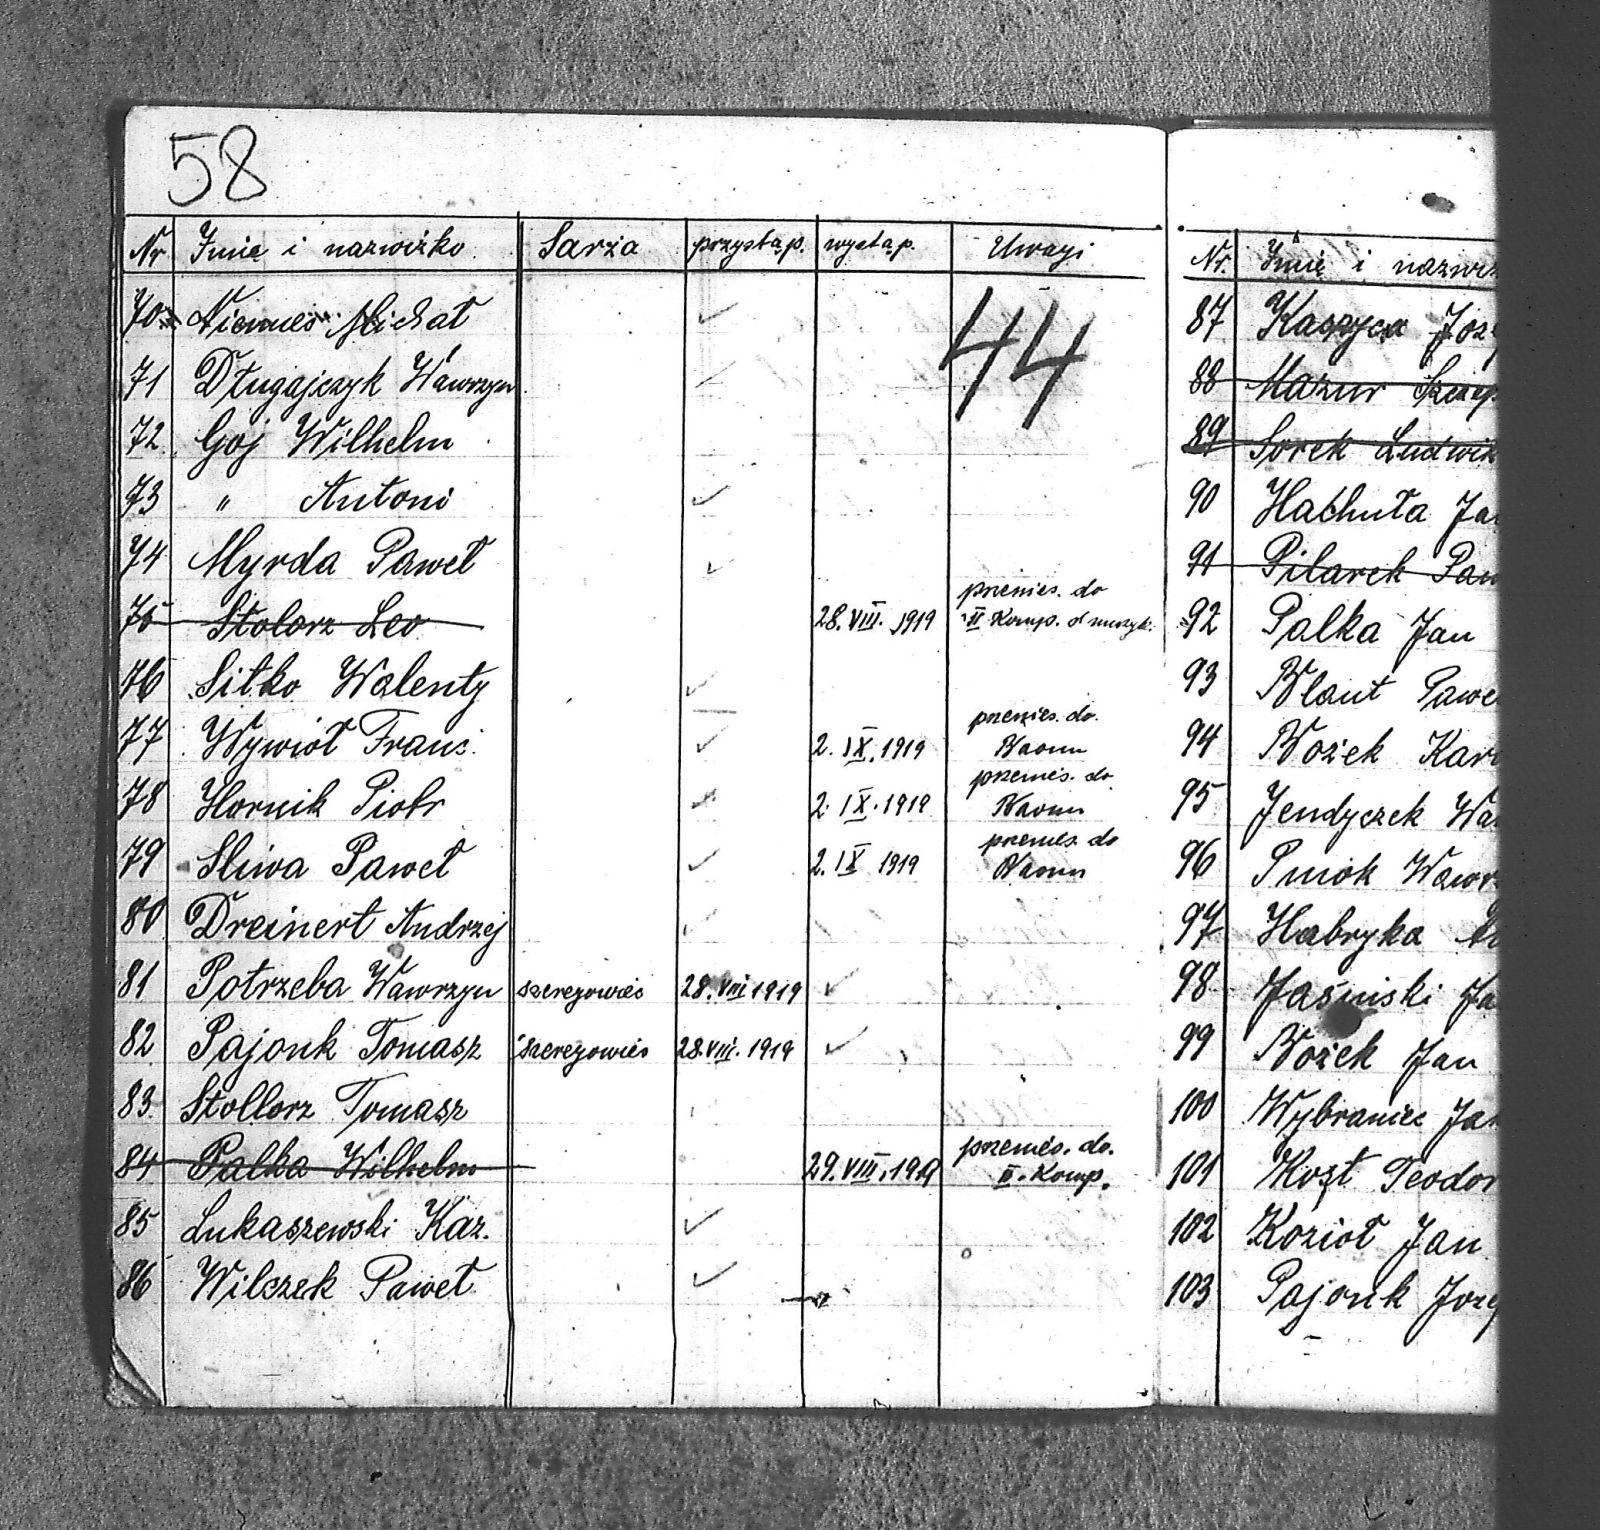 58
Nr Imię i nazwiżko Sarża przystąp. wystąp. Uwagi
44
70 Michał
71 Długajczyk Wawrzyn
72. Goj Wilhelm
73 " Antoni
74 Myrda Paweł
75 Stolorz Leo 28. VIII. 1919 przenies. do
II Komp.
76 Sitko Walenty
77 Wywioł Franc. 2. IX. 1919 przenies. do.
78 Hornik Piotr 2. IX. 1919 przenies. do
79 Sliwa Paweł 2. IX 1919 przenies. do
80 Dreinert Andrzej
81 Potrzeba Wawrzyn szeregowiec 28. VIII 1919
82 Pajonk Tomasz szeregowiec 28. VIII. 1919
83. Stollorz Tomasz
84 Palka Wilhelm 29. VIII. 1919 przenies. do.
II. Komp.
85 Lukaszewski Kaz.
86 Wilczek Paweł
Nr. Imię i nazwiż
87 Kaszyca Joz
88 Mazur Szczep
89 Sorek Ludwik
90 Hachuła Jan
91 Pilarek Paw
92 Palka Jan
93 Blaut Pawe
94 Bożek Karo
95 Jendyczek Waw
96 Pniok Wawrz
97 Habryka
98 Jaśniski Ja
99 Bożek Jan
100 Wybraniec Jan
101 Kozt Teodor
102 Kozioł Jan
103 Pajonk Joze